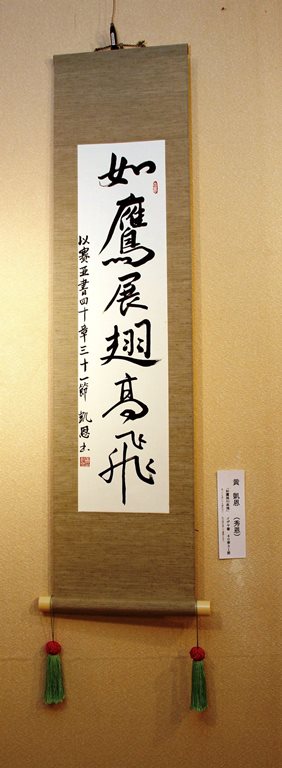 如鷹展翅高飛
以賽亞書四十章三十一節 凱恩书
黄 凱恩 (秀恩)